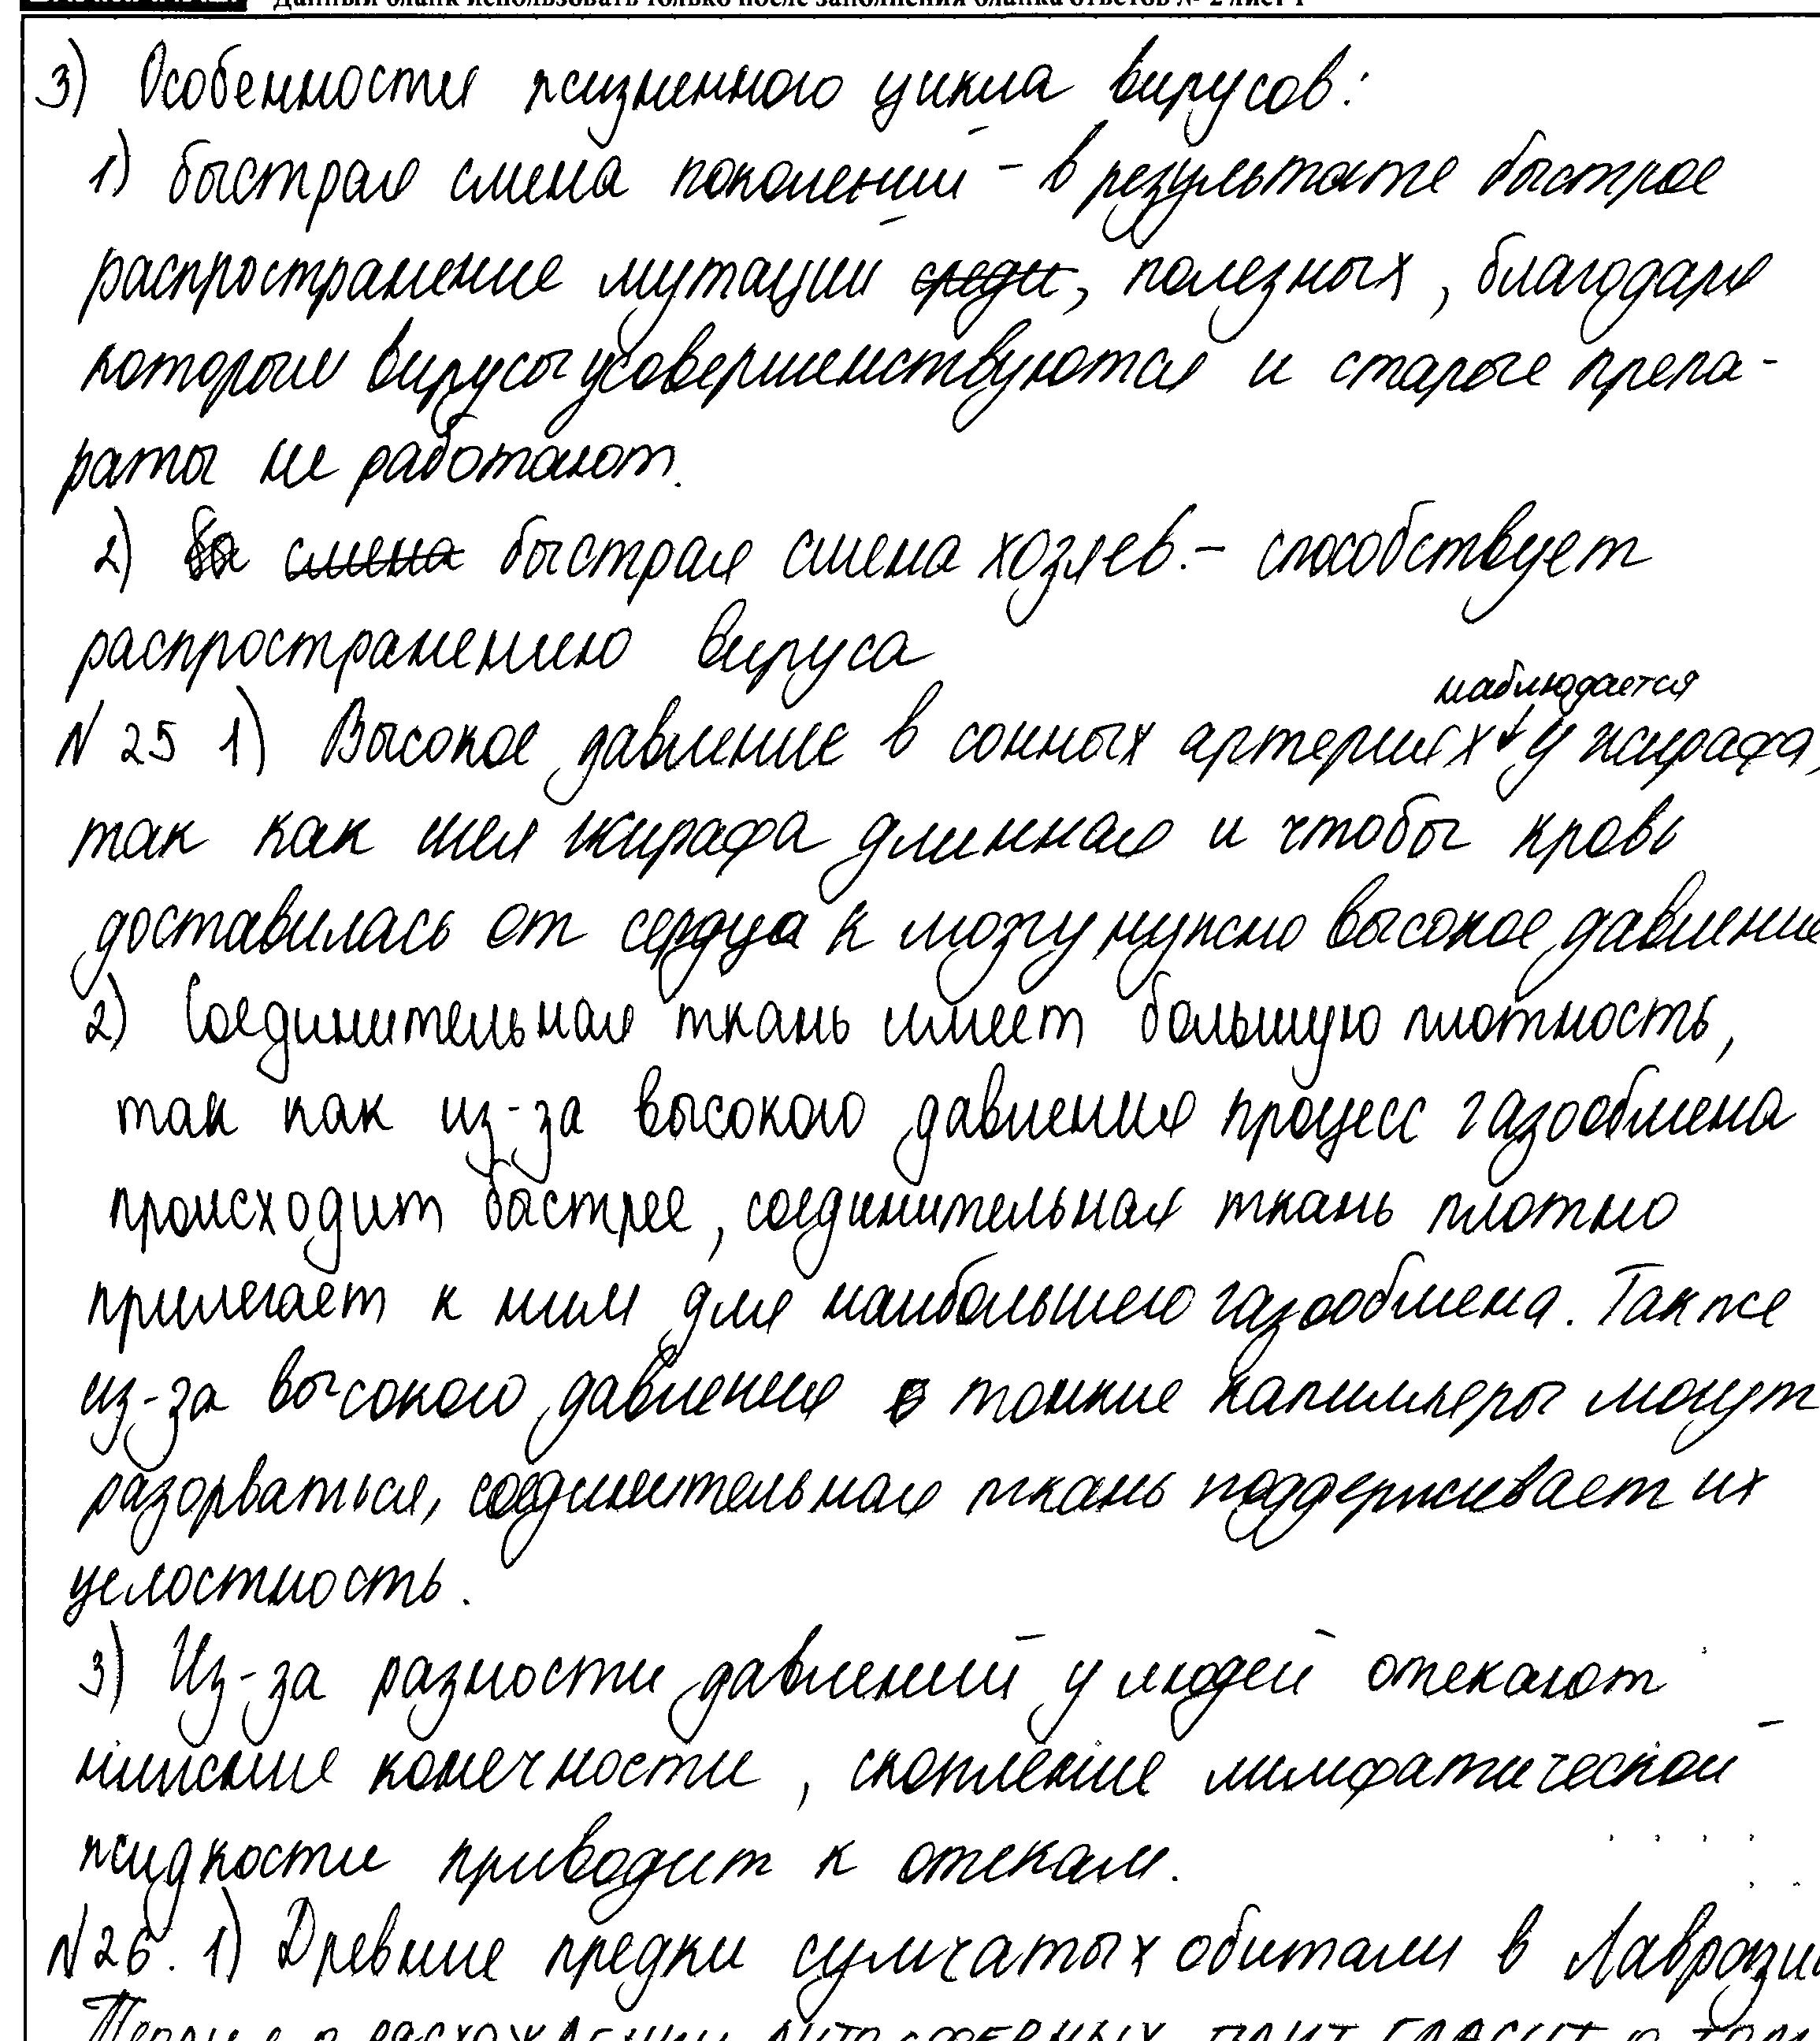 Данный бланк использовать только после заполнения бланка ответов № 2 лист 1
3) Особенности жизненного цикла вирусов:
1) быстрая смена поколений – в результате быстрое
распространение мутаций среди, полезных, благодаря
которым вирусы усовершенствуются и старые препа-
раты не работают.
2) смена быстрая смена хозяев. – способствует
распространению вируса
наблюдается
N 25 1) Высокое давление в сонных артериях у жирафа,
так как шея жирафа длинная и чтобы кровь
доставилась от сердца к мозгу нужно высокое давление
2) Соединительная ткань имеет большую плотность,
так как из-за высокого давления процесс газообмена
происходит быстрее, соединительная ткань плотно
прилегает к ним для наибольшего газообмена. Также
из-за высокого давления тонкие капилляры могут
разорваться, соединительная ткань поддерживает их
целостность.
3) Из-за разности давлений у людей отекают
нижние конечности, скопление лимфатической
жидкости приводит к отекам.
N26. 1) Древние предки сумчатых обитали в Лавразии